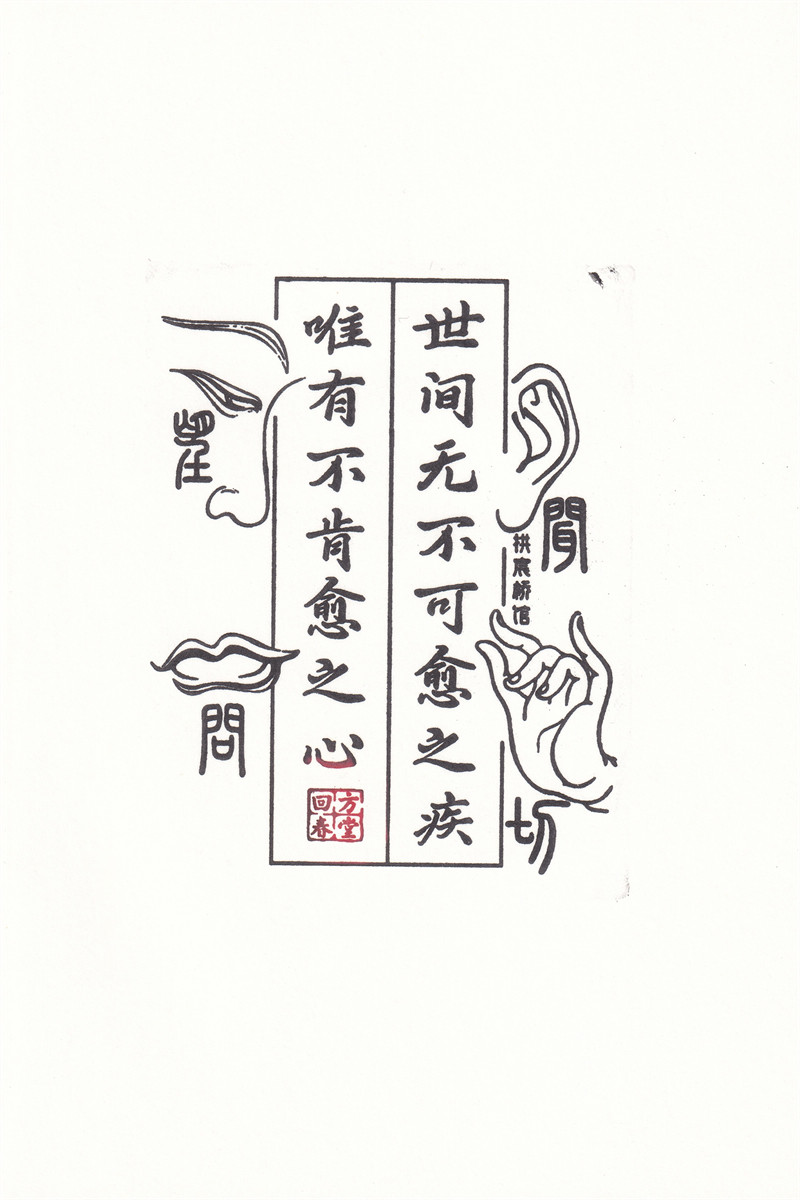 世间无不可愈之疾
唯有不肯愈之心
方回春堂
望
聞
問
切
拱宸桥馆